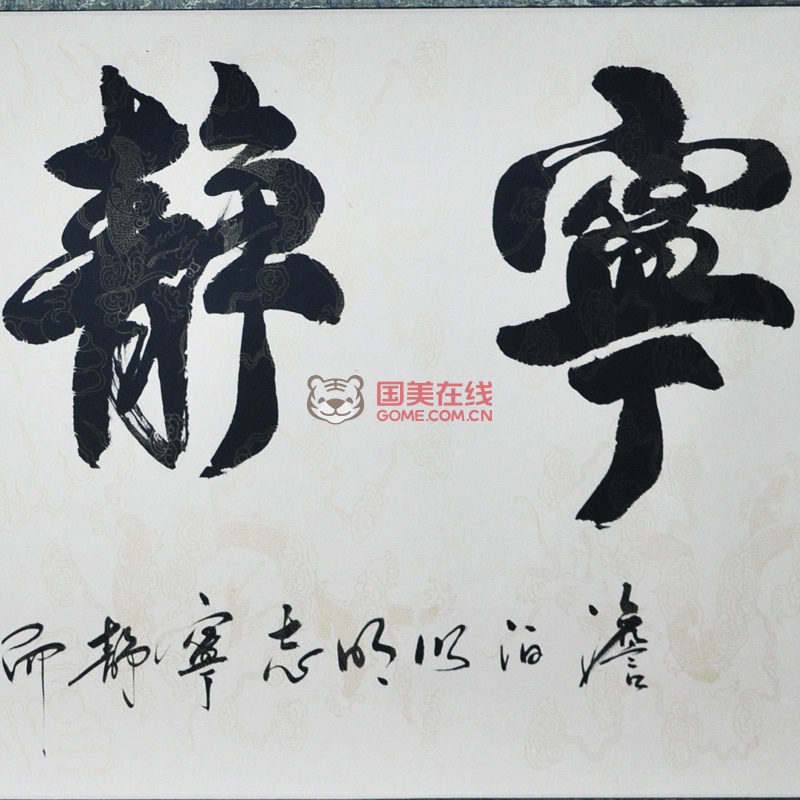 寧靜
澹泊以明志寧靜而
国美在线
GOME.COM.CN